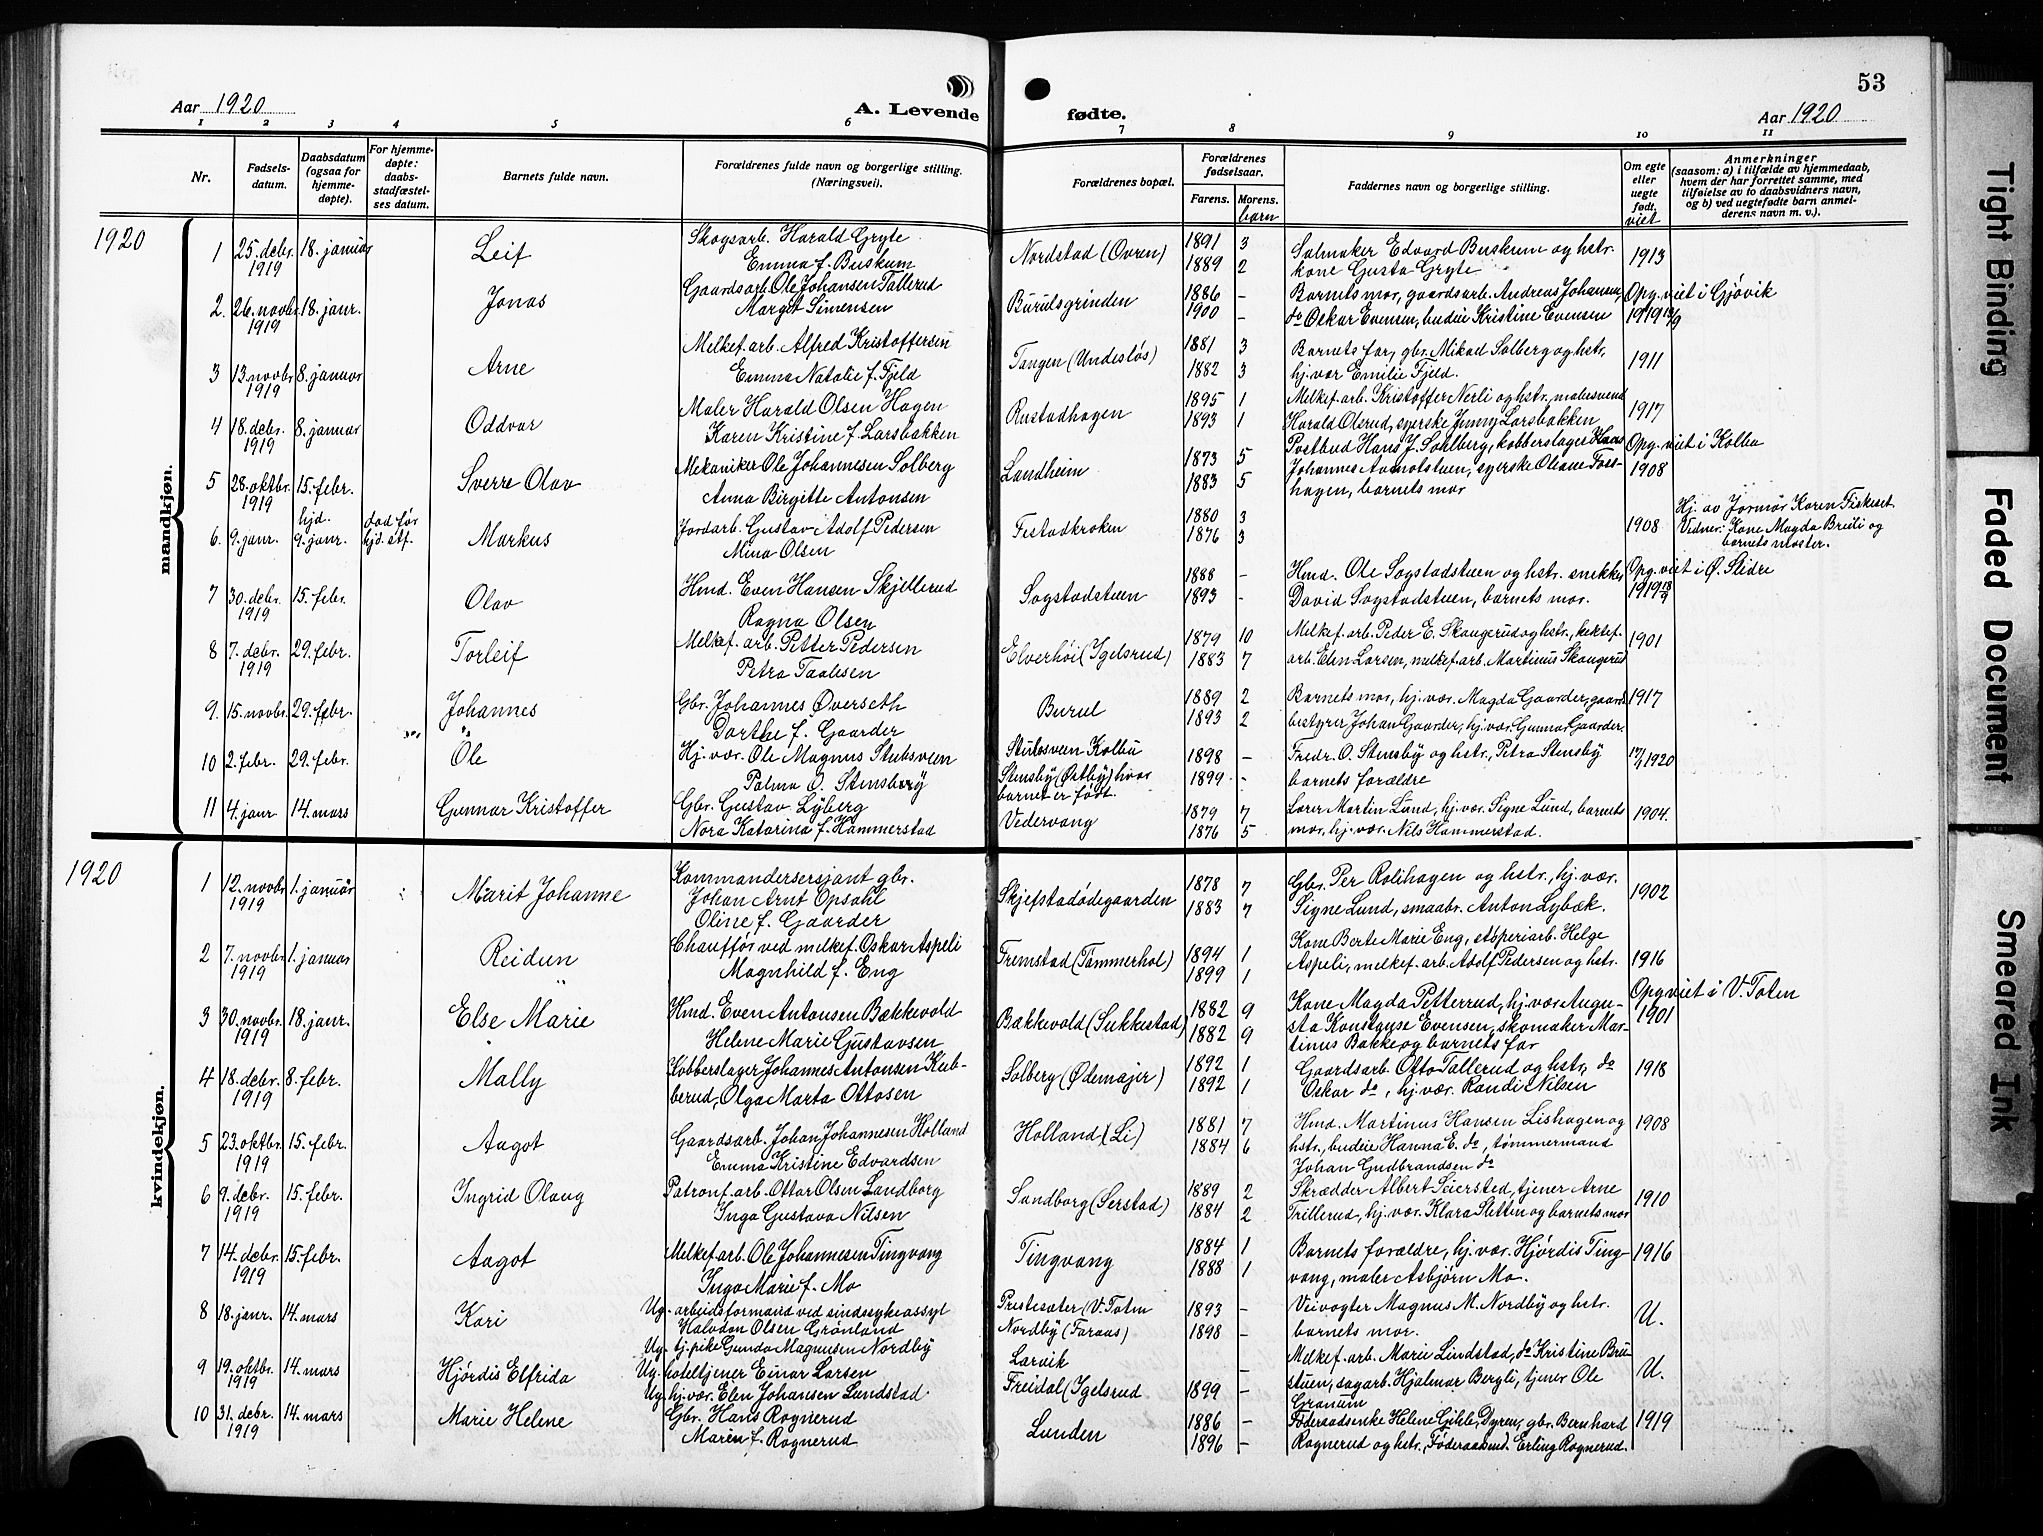 53
Aar 1920
A. Levende fødte.
Aar 1920
1 2 3 4 5 6 7 8 9 10 11
Nr.
Fødsels-
datum.
Daabsdatum
(ogsaa for
hjemme-
døpte).
For hjemme-
døpte:
daabs-
stadfæstel-
ses datum.
Barnets fulde navn.
Forældrenes fulde navn og borgerlige stilling.
(Næringsvei).
Forældrenes bopæl.
Forældrenes
fødselsaar.
Farens. Morens.
barn
Faddernes navn og borgerlige stilling.
Om egte
eller
uegte
født.
viet
Anmerkninger
(saasom: a) i tilfælde av hjemmedaab,
hvem der har forrettet samme, med
tilføielse av to daabsvidners navn,
og b) ved uegtefødte barn anmel-
derens navn m. v.).
1920
mandkjøn.
1 25. debr. 1919 18. januar Leif
Skogsarb. Harald Gryte
Emma f. Buskum
Nordstad (Ovren)
1891 3
1889 2
Salmaker Edvard Buskum og hstr.
kone Gusta Gryte
1913
2. 26. novbr. 1919 18. janr. Jonas
Gaardsarb. Ole Johansen Tallerud
Margit Simensen
Burulsgrinden
1886 -
1900 -
Barnets mor, gaardsarb. Andreas Johansen,
do Oskar Evensen, budeie Kristine Evensen
Opg. viet i Gjøvik
1919
3 13. novbr 1919 8. januar Arne
Melkef. arb. Alfred Kristoffersen
Emma Natalie f. Fjeld
Tangen (Undesløs)
1881 3
1882 3
Barnets far, gbr. Mikael Solberg og hstr,
hj. vær Emilie Fjeld.
1911
4 18. debr. 1919 8. januar Oddvar
Maler Harald Olsen Hagen
Karen Kristine f. Larsbakken
Rustadhagen
1895 1
1893 1
Melkef. arb. Kristoffer Nerli og hstr, malersvend
Harald Olsrud, syerske Jenny Larsbakken
1917
5 28. oktbr. 1919 15. febr. Sverre Olav
Mekaniker Ole Johannesen Solberg
Anna Birgitte Antonsen
Landheim
1873 5
1883 5
Postbud Hans J. Sohlberg, kobberslager Hans
Johannes Aamotstuen, syerske Oleane Fos-
hagen, barnets mor
Opg. viet i Kolbu
1908
6. 9. janr. hjd. 9. janr. død før hjd. stf. Markus
Jordarb. Gustav Adolf Pedersen
Mina Olsen
Festadkroken
1880 3
1876 3
1908
Hj. av Jormor Karen Fiskeset
Vidner: Kone Magda Breili og
barnets moster.
7 30. debr. 1919 15. febr. Olav
Hmd. Even Hansen Skjellerud
Ragna Olsen
Sogstadstuen
1888 -
1893 -
Hmd. Ole Sogstadstuen og hstr. snekker
David Sogstadstuen, barnets mor.
Opg. viet i Ø. Slidre
1919
8 7. debr. 1919 29. febr. Torleif
Melkef. arb. Petter Pedersen
Petra Paalesen
Elverhøi (Igelsrud)
1879 10
1883 7
Melkef. arb. Peder E. Skaugerud og hstr., kektef.
arb. Elen Larsen, melkef. arb. Martinus Skaugerud
1901
9. 15. novbr. 29. febr. Johannes
Gbr. Johannes Øverseth
Dorthe f. Gaarder
Burul
1889 2
1893 2
Barnets mor, hj. vær. Magda Gaarder, gaard
bestyrer Johan Gaarder, hj. vær. Gunnar Gaarder.
1917
10 2. febr. 29. febr. Ole
Hj. vær. Ole Magnus Stubsveen
Palma O. Stensby
Stubsveen Kolbu
Stensby (Østby) hvor
barnet er født.
1898 -
1899 -
Fredr. O. Stensby og hstr., Petra Stensby
barnets forældre
17/1 1920
11 4. janr 14. mars Gunnar Kristoffer
Gbr. Gustav Lyberg
Nora Katarina f. Hammerstad
Vedervang
1879 7
1876 5
Lærer Martin Lund, hj. vær. Signe Lund, barnets
mor, hj. vær. Nils Hammerstad.
1904.
1920
kvindekjøn.
1 12. novbr 1919 1. januar Marit Johanne
Kommandersersjant gbr.
Johan Arnt Opsahl
Oline f. Gaarder
Skjefstadødegaarden
1878 7
1883 7
Gbr. Per Rolihagen og hstr., hj. vær.
Signe Lund, smaabr. Anton Lybæk.
1902
2 7. novbr 1919 1. januar Reidun
Chauffør ved melkef. Oskar Aspeli
Magnhild f. Eng
Fremstad (Tømmerhol)
1894 1
1899 1
Kone Berte Marie Eng, støperiarb. Helge
Aspeli, melkef. arb. Adolf Pedersen og hstr.
1916
3 30. novbr. 1919 18. janr. Else Marie
Hmd. Even Antonsen Bækkevold
Helene Marie Gustavsen
Bækkevold (Sukkestad)
1882 9
1882 9
Kone Magda Petterrud, hj. vær Augu-
sta Konstanse Evensen, skomaker Mar-
tinus Bakke og barnets far
Opg viet i V. Toten
1901
4 18. debr. 1919 8. febr. Mally
Kobberslager Johannes Antonsen Kub-
berud, Olga Marta Ottosen
Solberg (Ødemajer)
1892 1
1892 1
Gaardsarb. Otto Tallerud og hstr, do
Oskar do, hj. vær. Randi Nilsen
1918
5 23. oktbr. 1919 15. febr. Aagot
Gaardsarb. Johan Johannesen Holland
Emma Kristine Edvardsen
Holland (Li)
1881 7
1884 6
Hmd. Martinus Hansen Lishagen og
hstr., budeie Hanna E. do, tømmermand
Johan Gudbrandsen do
1908
6 9. debr. 1919 15. febr. Ingrid Olaug
Patronf. arb. Ottar Olsen Sandborg
Inga Gustava Nilsen
Sandborg (Serstad)
1889 2
1884 2
Skrædder Albert Seiersted, tjener Arne
Trillerud, hj. vær. Klara Sletten og barnets mor
1910
7 14. debr. 1919 15. febr. Aagot
Melkef. arb. Ole Johannesen Tingvang
Inga Marie f. Mo
Tingvang
1884 1
1888 1
Barnets forældre, hj. vær. Hjørdis Ting-
vang, maler Asbjørn Mo.
1916
8 18. janr. 14. mars Kari
Ug. arbeidsformand ved sindssykeassyl
Halvdan Olsen Grønland
Ug. tj. pike Gunda Magnussen Nordby
Prestesæter (V. Toten
Nordby (Faraas)
1893 -
1898 -
Veivogter Magnus M. Nordby og hstr.
barnets mor.
U.
9 19. oktbr. 1919 14. mars Hjørdis Elfrida
Ug. hoteltjener Einar Larsen
Ug. hj. vær. Elen Johansen Lundstad
Larvik
Freidal (Igelsrud
1899 -
Melkef. arb. Marie Lindstad, do Kristine Bru-
stuen, sagarb. Hjalmar Bergli, tjener Ole
Granum
U.
10 31. debr. 1919 14. mars Marie Helene
Gbr. Hans Rognerud
Maren f. Rognerud
Lunden
1886 -
1896 -
Føderaadsenke Helene Gihle, Dyren, gbr. Bernhard
Rognerud og hstr., Føderaadsmd. Erling Rognerud.
1919
Tight Binding
Faded Document
Smeared Ink